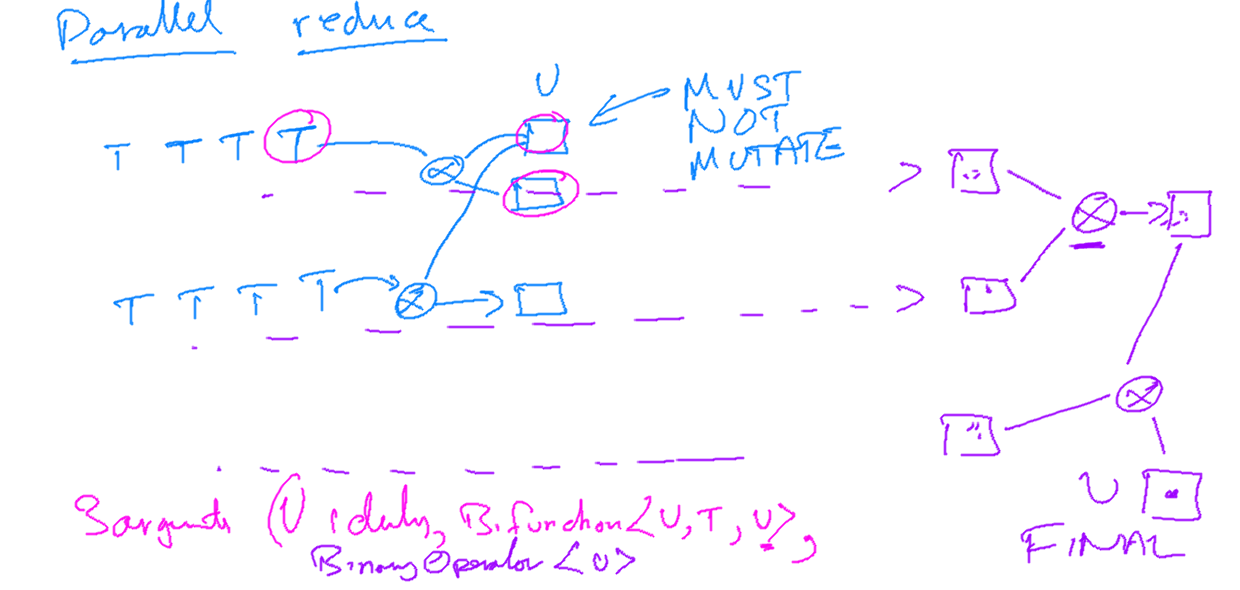 Parallel reduce
U
MUST
NOT
MUTATE
T T T T
T T T T
U
FINAL
3 arguments (U identity, BiFunction<U,T,U>,
BinaryOperator<U>